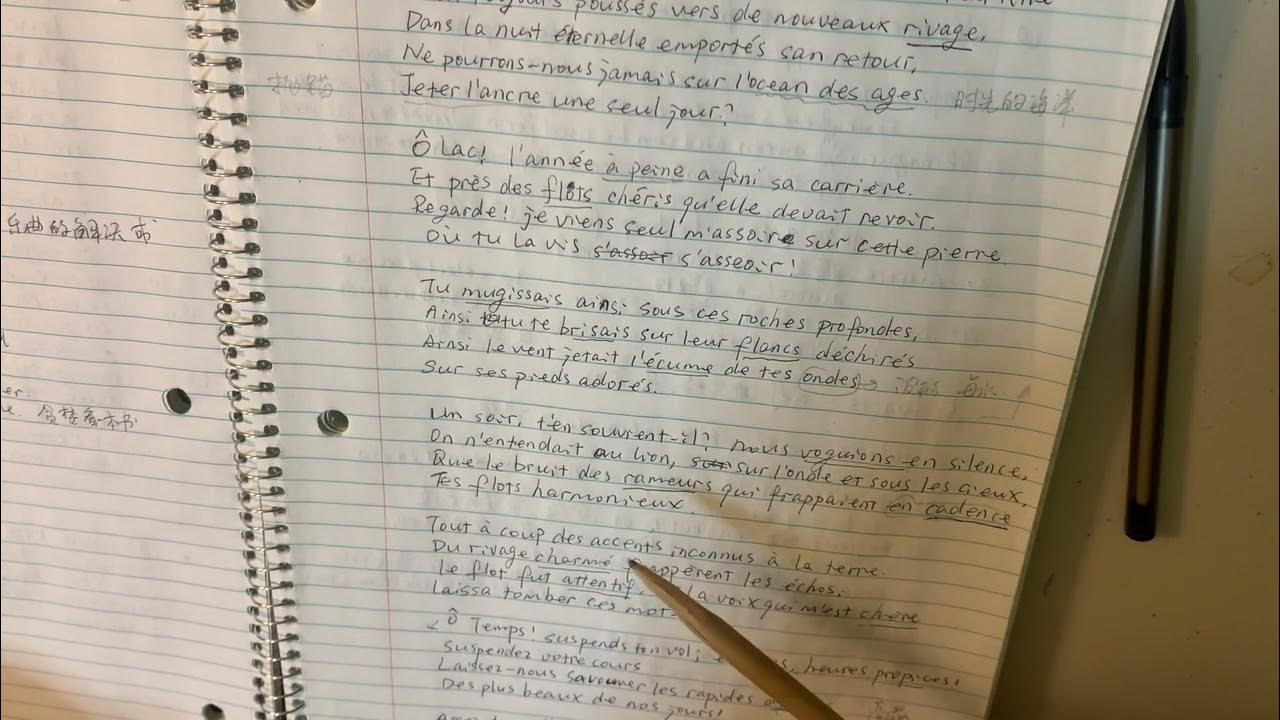 poussés vers de nouveaux rivage,
Dans la nuit éternelle emportés san retour,
Ne pourrons-nous jamais sur l'ocean des ages. 时光的海洋
Jeter l'ancre une seul jour?
Ô Lac! l'année à peine a fini sa carrière.
Et près des flots chéris qu'elle devait revoir.
Regarde! je viens seul m'assoire sur cette pierre
Où tu la vis s'assoir s'asseoir!
Tu mugissais ainsi sous ces roches profondes,
Ainsi tu te brisais sur leur flancs déchirés
Ainsi le vent jetait l'écume de tes ondes
Sur ses pieds adorés.
Un soir, t'en souvient-il? nous voguions en silence,
On n'entendait au lion, sur l'onde et sous les cieux,
Que le bruit des rameurs qui frappaient en cadence
Tes flots harmonieux.
Tout à coup des accents inconnus à la terre.
Du rivage charmé frappèrent les échos.
Le flot fut attentif, la voix qui m'est chère
Laissa tomber ces mots
Ô Temps! suspends ton vol; heures propices!
Suspendez votre cours
Laissez-nous savourer les rapides
Des plus beaux de nos jours!